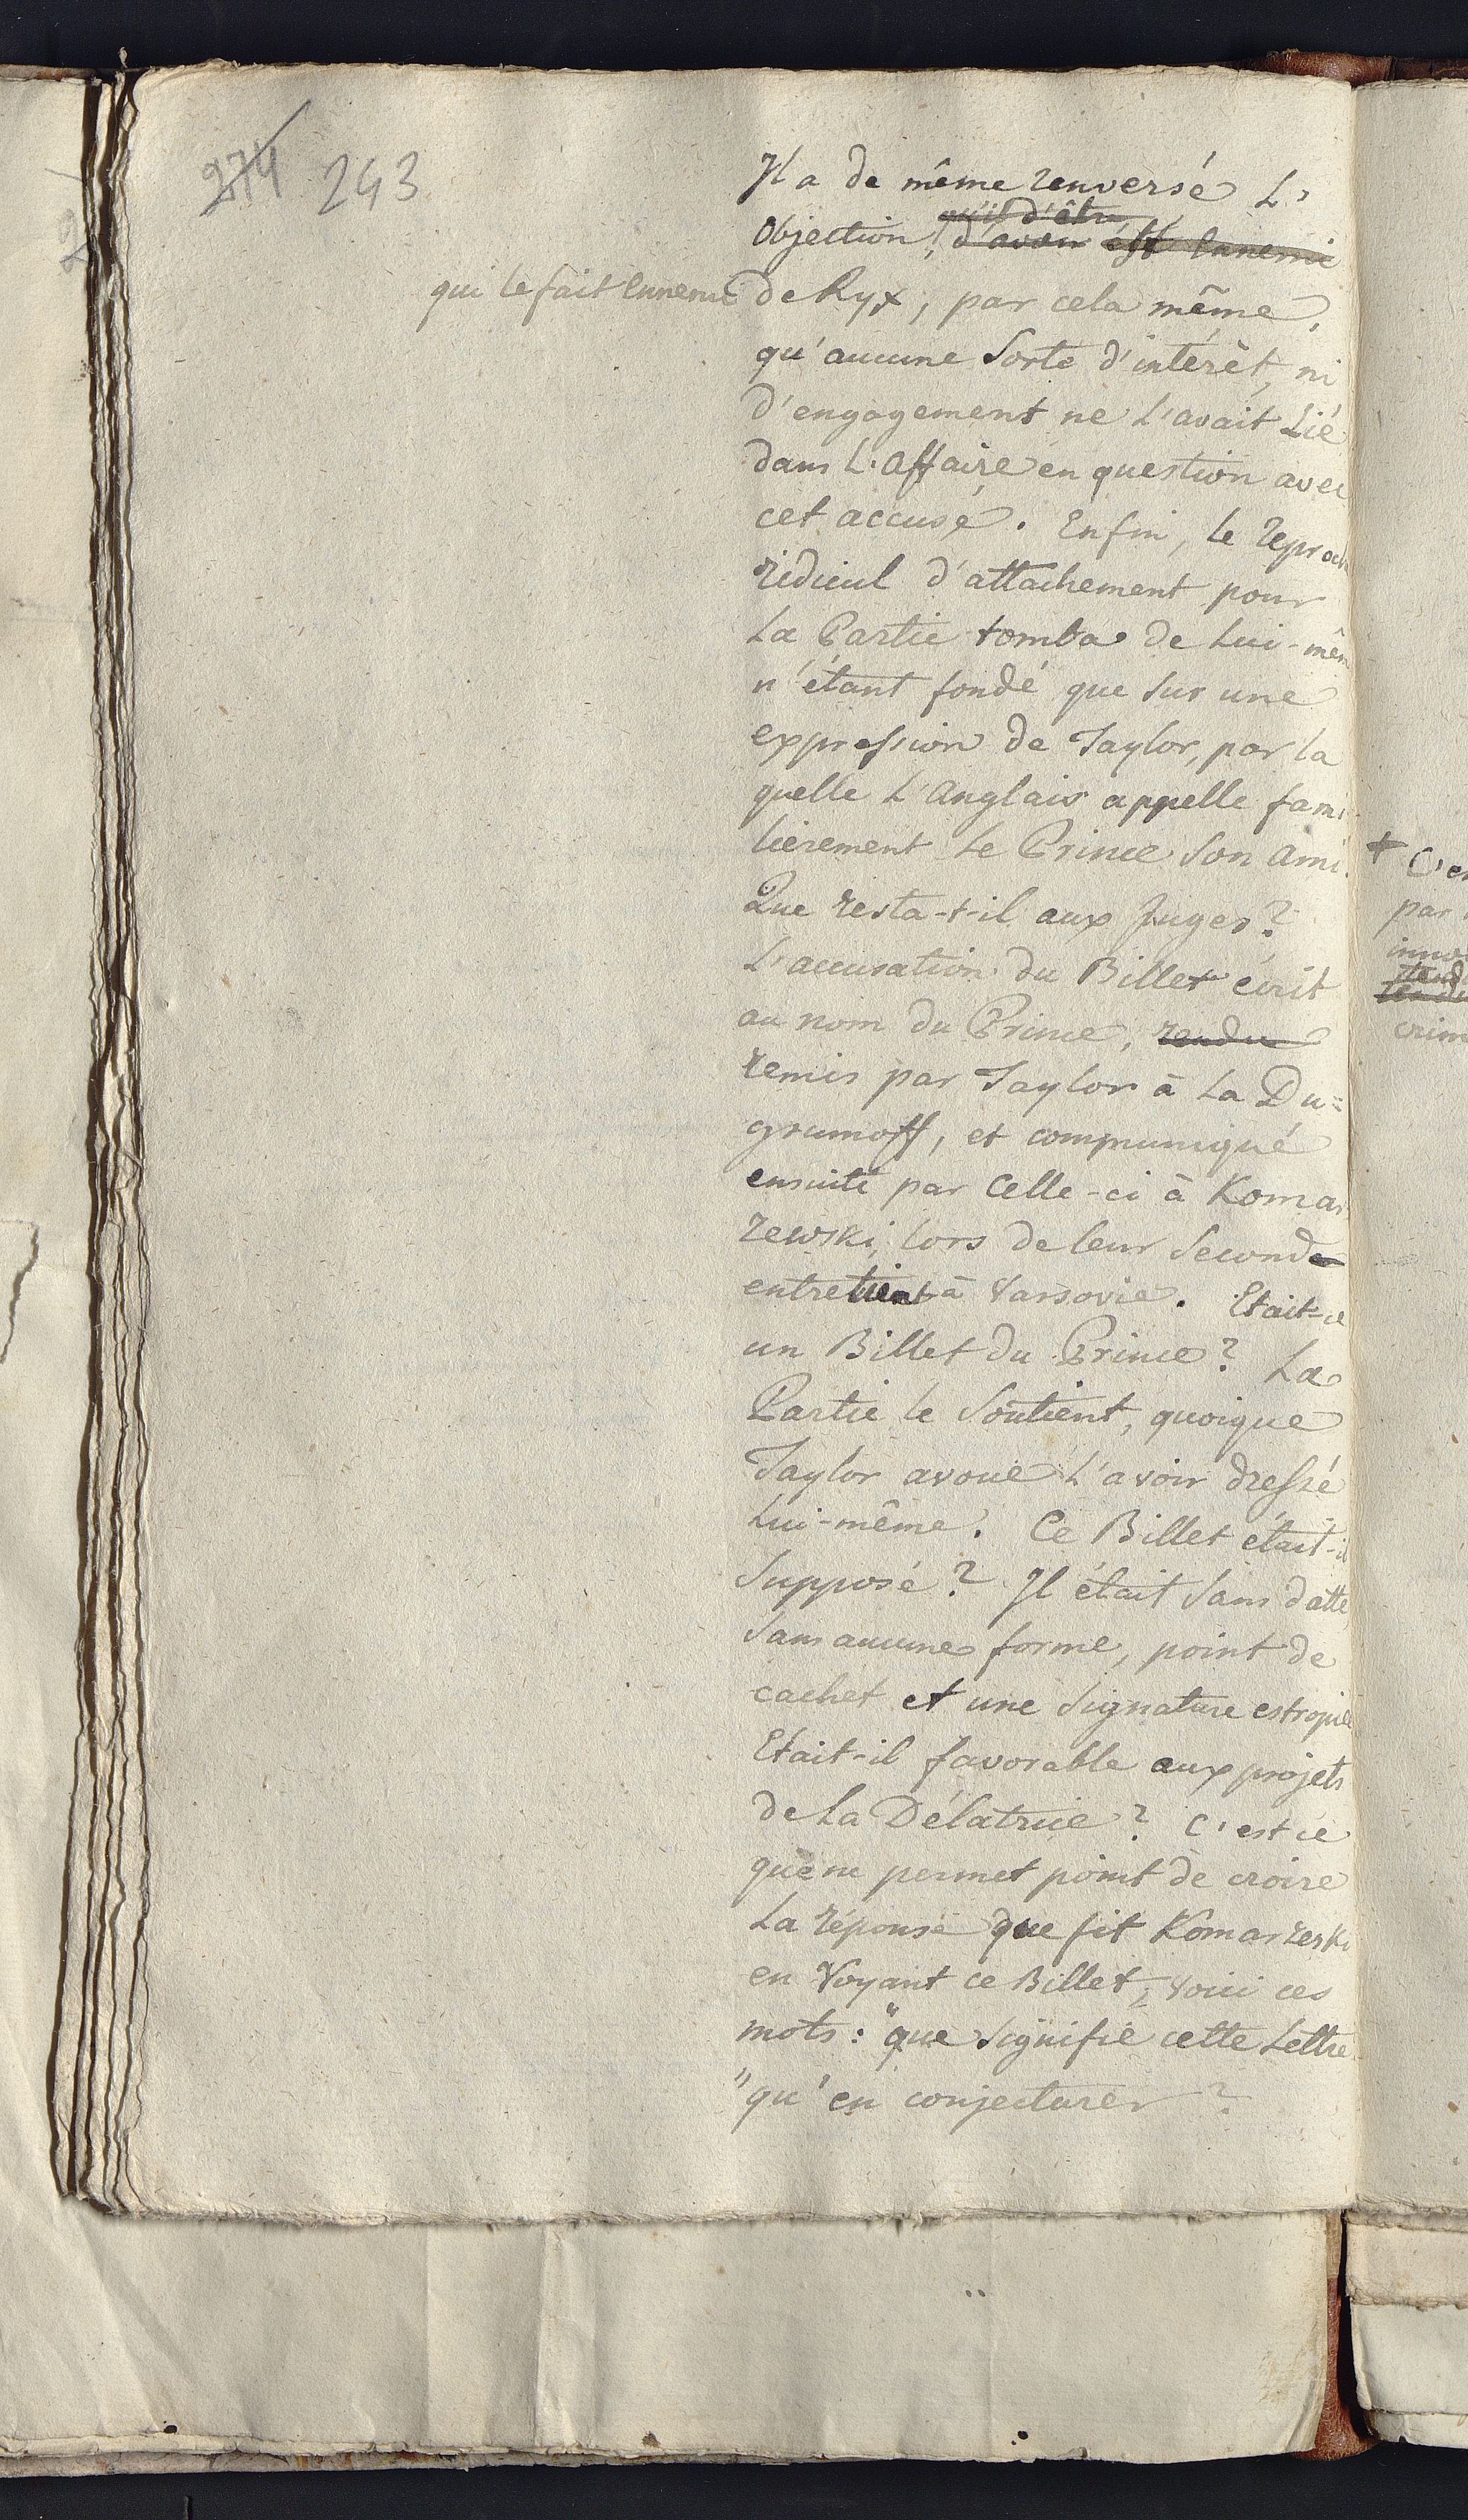 274 243
Il a de même renversé L'
qu'il d'être
Objection, d'avoir été Ennemi
qui le fait Ennemi de Ryx, par cela même,
qu'aucune Sorte d'intérêt, ni
d'engagement ne L'avait Lié
dans L'Affaire en question avec
cet accusé. Enfin, le reproche
ridicul d'attachement pour
La Partie tomba de Lui-même
n'étant fondé que Sur une
expression de Taylor, par la
quelle L'Anglais appelle fami-
lièrement Le Prince Son Ami.
Que resta-t-il aux Juges?
L'accusation du Billet écrit
au nom du Prince, rendu
remis par Taylor à La Du=
grumoff, et communiqué
ensuite par Celle-ci à Komar
zewski, lors de leur Seconde
entretient à Varsovie. Etait-ce
un Billet du Prince? La
Partie le Soutient, quoique
Taylor avoue L'avoir dressé
Lui-même. Ce Billet était-il
Supposé? Il était Sans datte,
Sans aucune forme, point de
cachet et une Signature estropiée
Etait-il favorable aux projets
de La Délatrice? C'est ce
que ne permet point de croire
La réponse que fit Komarzeski
en Voyant ce Billet, voici ces
mots: "que Signifie cette Lettre
"qu'en conjecturer?
+ C'es
par
inno
crim